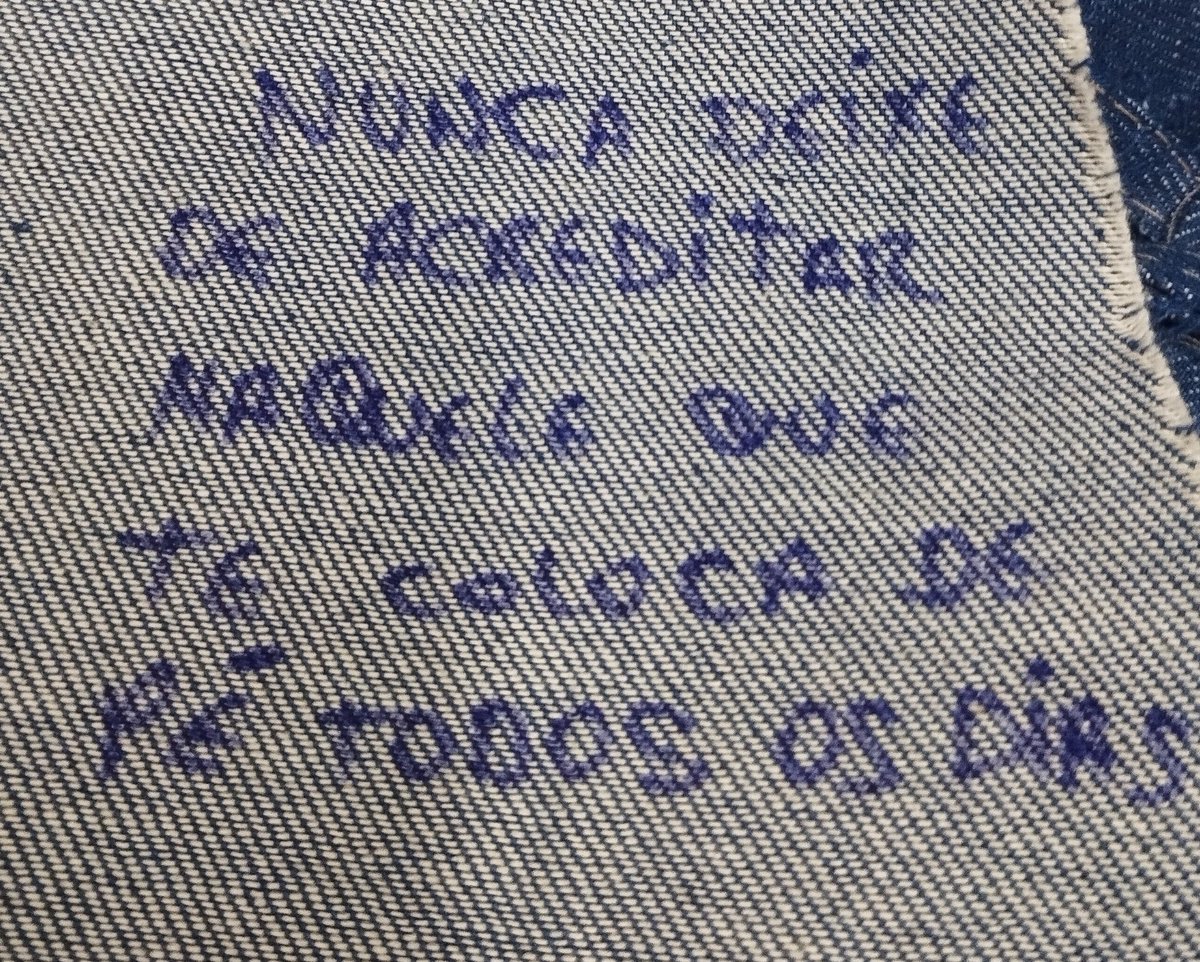 NUNCA DEIXE
DE ACREDITAR
NAQUELE QUE
TE COLOCA DE
PÉ TODOS OS DIAS